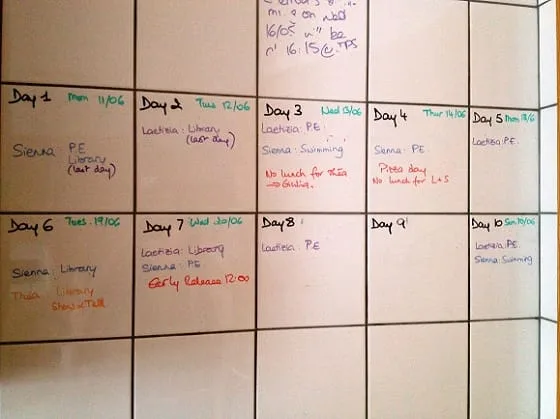 mi. 2 on Wed
16/05 be
16:15 @ TPS
Day 1 Mon 11/06
Sienna P.E
Library
(last day)
Day 2 Tue 12/06
Laetizia: Library
(last day)
Day 3 Wed 13/06
Laetizia: P.E.
Sienna: Swimming
No lunch for Thea
Day 4 Thur 14/06
Sienna: P.E.
Pizza day
No lunch for L+S
Day 5 Mon 18/6
Laetizia: P.E.
Day 6 Tues. 19/06
Sienna: Library
Thea Library
Show & Tell
Day 7 Wed 20/06
Laetizia: Library
Sienna: P.E.
Early Release 12:00
Day 8
Laetizia: P.E
Day 9
Day 10
Laetizia: P.E.
Sienna: Swimming